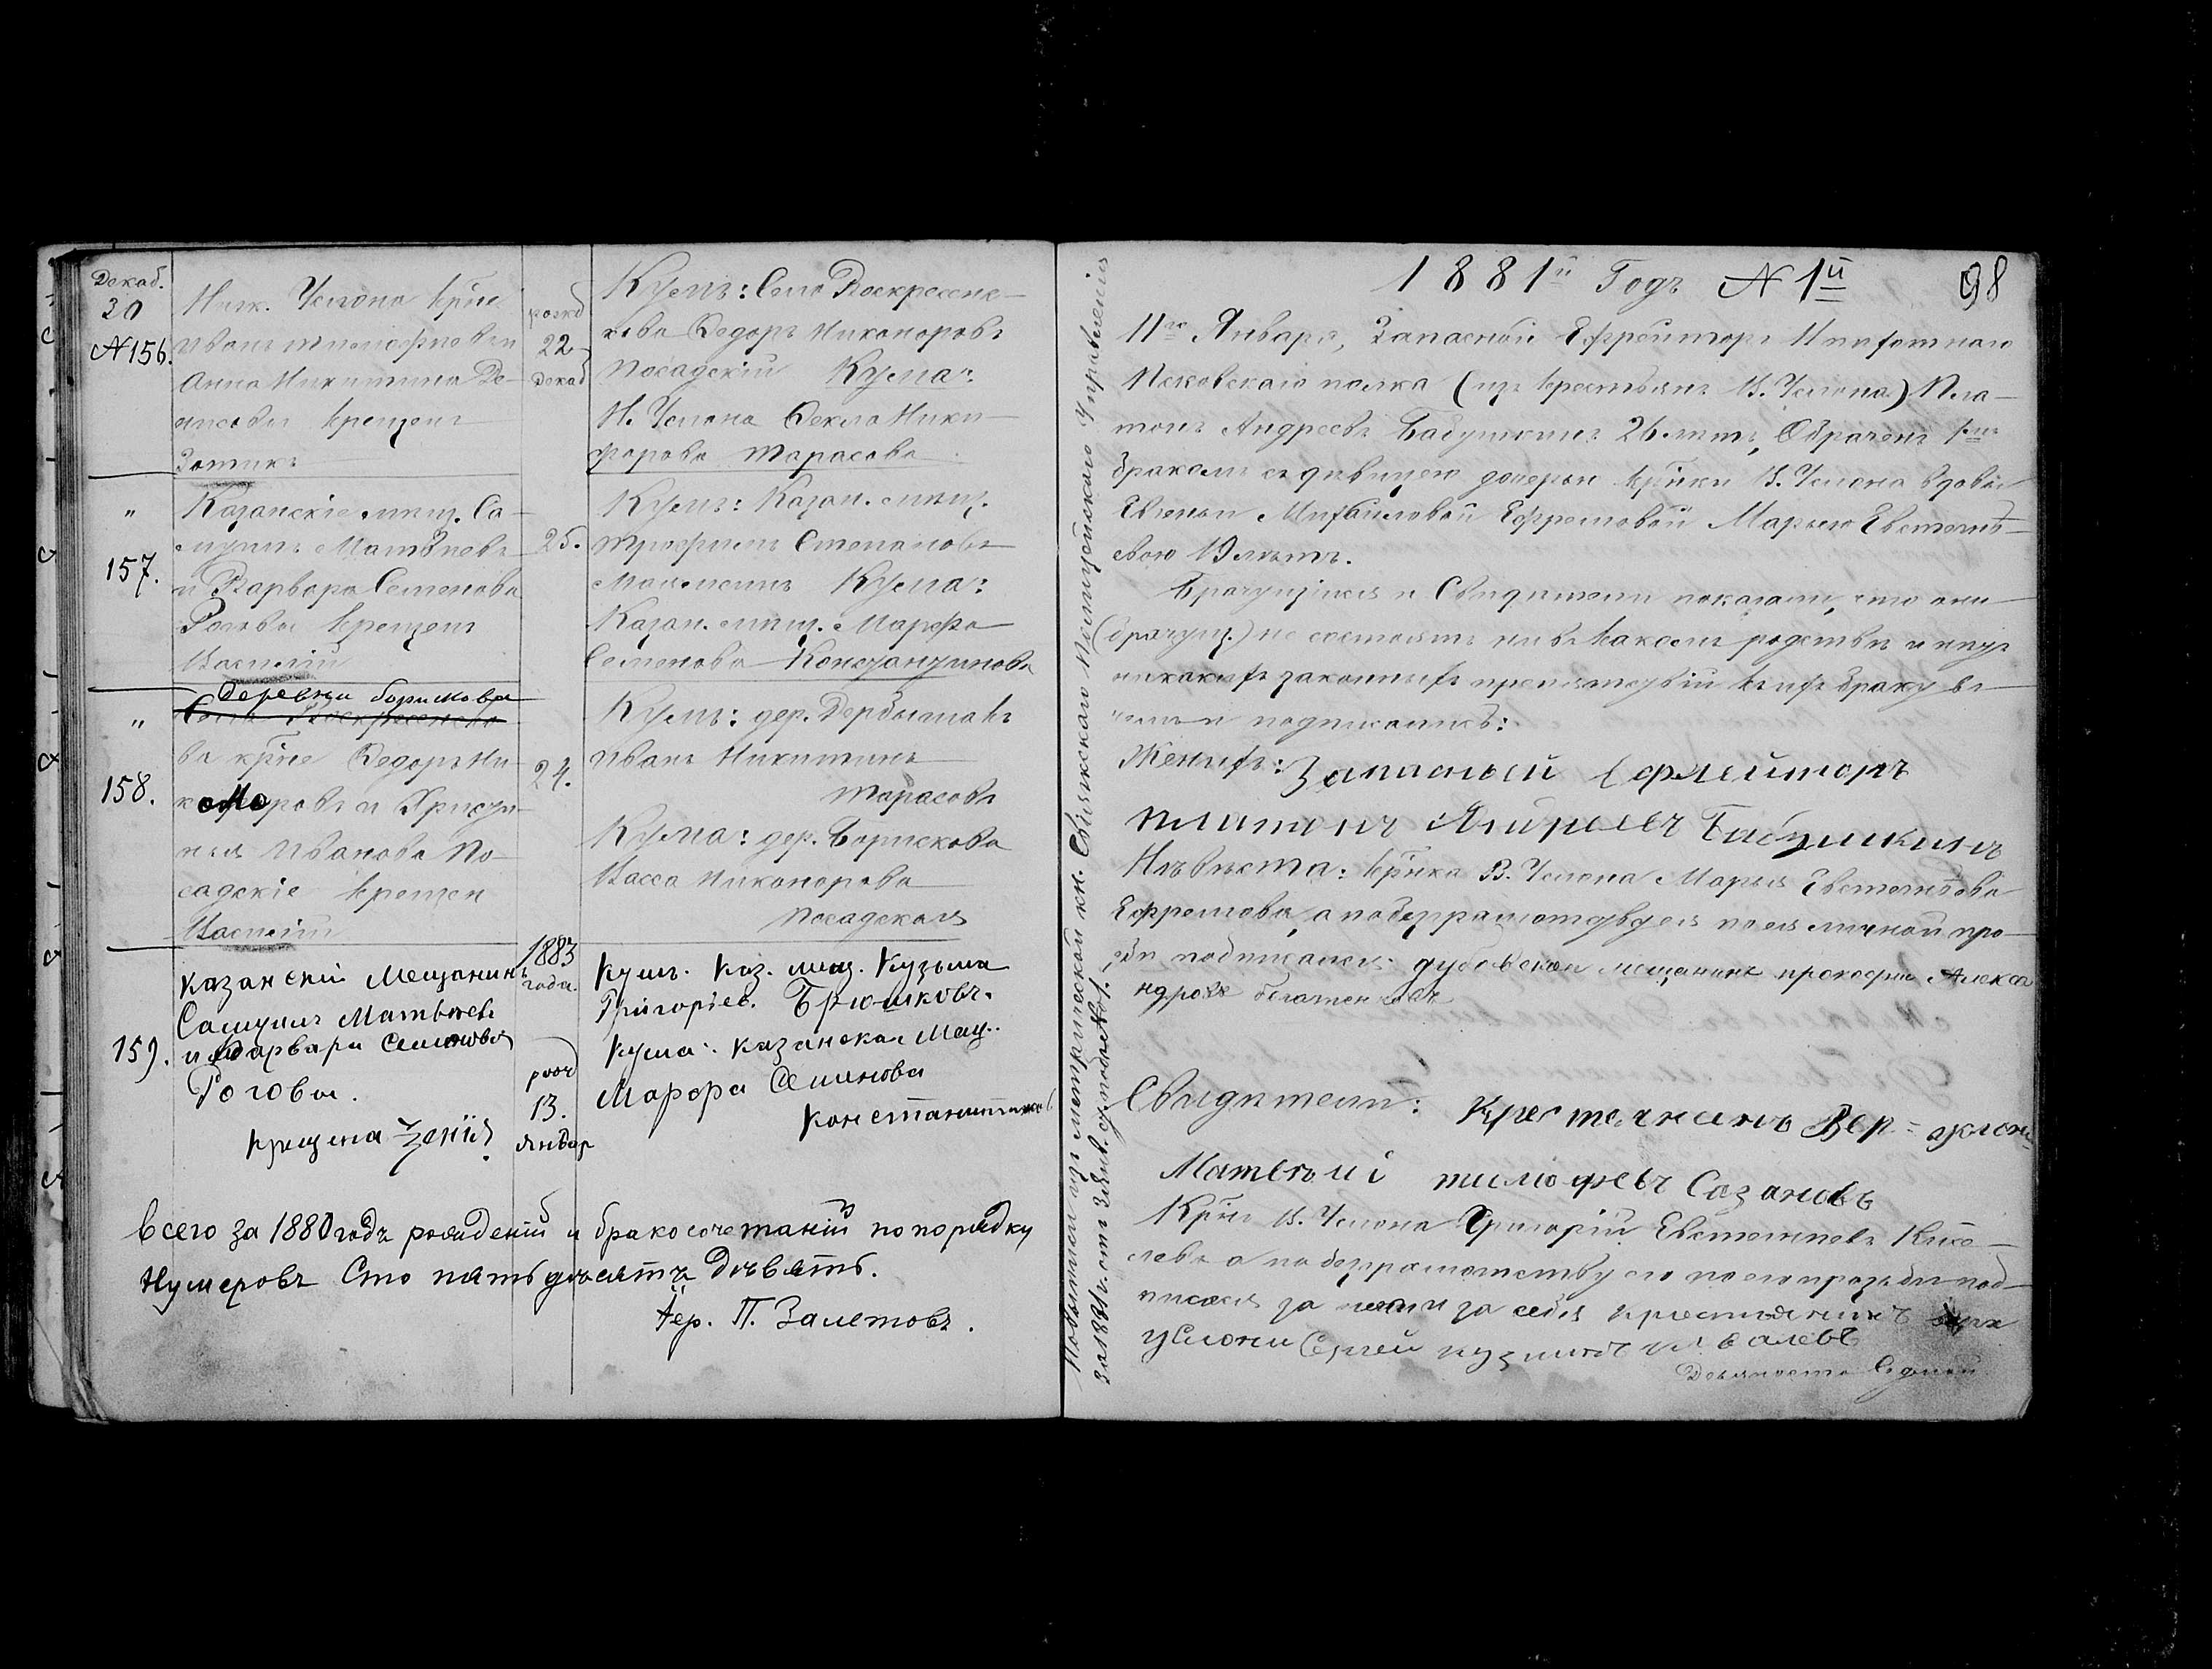 Декаб.
30
№156.
Ниж. Услона крне
Иванъ Тимофѣевъ и
Анна Никитина Де-
нисовы крещенъ
Зотикъ
рожд
22
декаб
Кумъ: Село Воскресенс-
кова Ѳедоръ Никоноровъ
Посадскій Кума:
Н. Услона Ѳекла Ники-
форова Тарасова
"
157.
Казанскіе мѣщ. Са-
муилъ Матвѣевъ
и Варвара Семенова
Роговы крещенъ
Василій
25.
Кумъ: Казан. мѣщ.
Трофимъ Степановъ
Кума:
Казан. мѣщ. Марѳа
Семенова Константинова
"
158.
Деревни Борисковы
Села Воскресенско
ва крне Ѳедоръ Ни-
коноровъ и Христи-
нья Иванова По-
садскіе крещен
Василій
24.
Кумъ: дер. Дербышакъ
Иванъ Никитинъ
Тарасовъ
Кума: дер. Борискова
Васса Никонорова
Посадская
159.
Казанскій Мещанинъ
Самуилъ Матвѣевъ
и Варвара Семенова
Роговы.
Крещена Зенія
1883
года.
рожд
13.
январ
Кумъ. Каз. мещ. Кузьма
Григоріев. Брюшковъ.
Кума: Казанская Мещ.
Марфа Семенова
Константинова
Всего за 1880 годъ рожденій и бракосочетаній по порядку
Нумеровъ Сто пятьдесятъ Девять.
Іер. П. Залетовъ.
Свіяжскаго Полицейскаго Управленія
за 1881 г.
1881й Годъ № 1й
98
11го Января, Запасный Ефрейторъ Пѣхотнаго
Псковскаго полка (изъ крестьянъ В. Услона) Пла-
тонъ Андреевъ Бабушкинъ 26 лѣтъ, Обрачен 1мъ
бракомъ съ дѣвицею дочерью крнки В. Услона вдовы
Евгеньи Михайловой Ефремовой Марьею Евстегнѣ-
евою 19 лѣтъ.
Брачущіися и Свидѣтели показали, что они
(брачущ.) не состоятъ ни въ какомъ родствѣ и нѣтъ
никакихъ законныхъ препятствій къ ихъ браку въ
чемъ и подписались:
Женихъ: Запасный Ефрейторъ
Платонъ Андреевъ Бабушкинъ
Невѣста: крнка В. Услона Марья Евстегнѣева
Ефремова, а по безграмотству ея по ея личной про-
сьбѣ подписался: дубовскои мещанинъ прокофи Алекса
ндровъ
Свидѣтели: Крестеянинъ Вер= услона
Матвѣи тимофевъ Сазановъ
Крнъ В. Услона Григорій Евстегнѣевъ Кисе-
левъ а по безграмотству его по его прозьбѣ под-
писался за него и за себя крестиянинъ верх
услони Сергеи кузминъ
Девяносто Седьмой